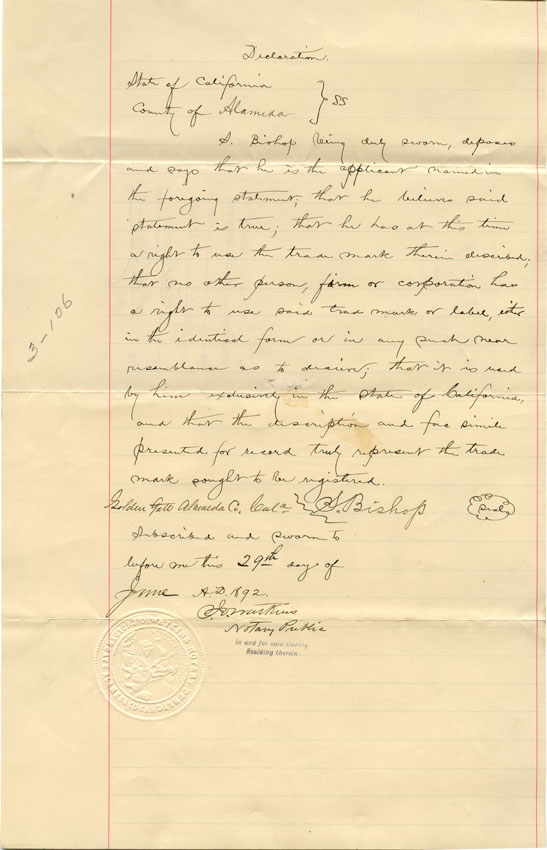 Declaration.
State of California
County of Alameda } SS
S. Bishop being duly sworn, deposes
and says that he is the applicant named in
the foregoing statement; that he believes said
statement is true; that he has at this time
a right to use the trade mark therein described;
that no other person, firm or corporation has
a right to use said trad mark or label, either
in the identical form or in any such near
resemblance as to deceive; that it is used
by him exclusively in the State of California,
and that the description and fac simile
presented for record truly represent the trade
mark sought to be registered.
Golden Gate Alameda Co. Cala } S. Bishop (seal)
Subscribed and sworn to
before me this 29th day of
June A.D. 1892.
Notary Public
In and for said County
Residing therein.
3-106